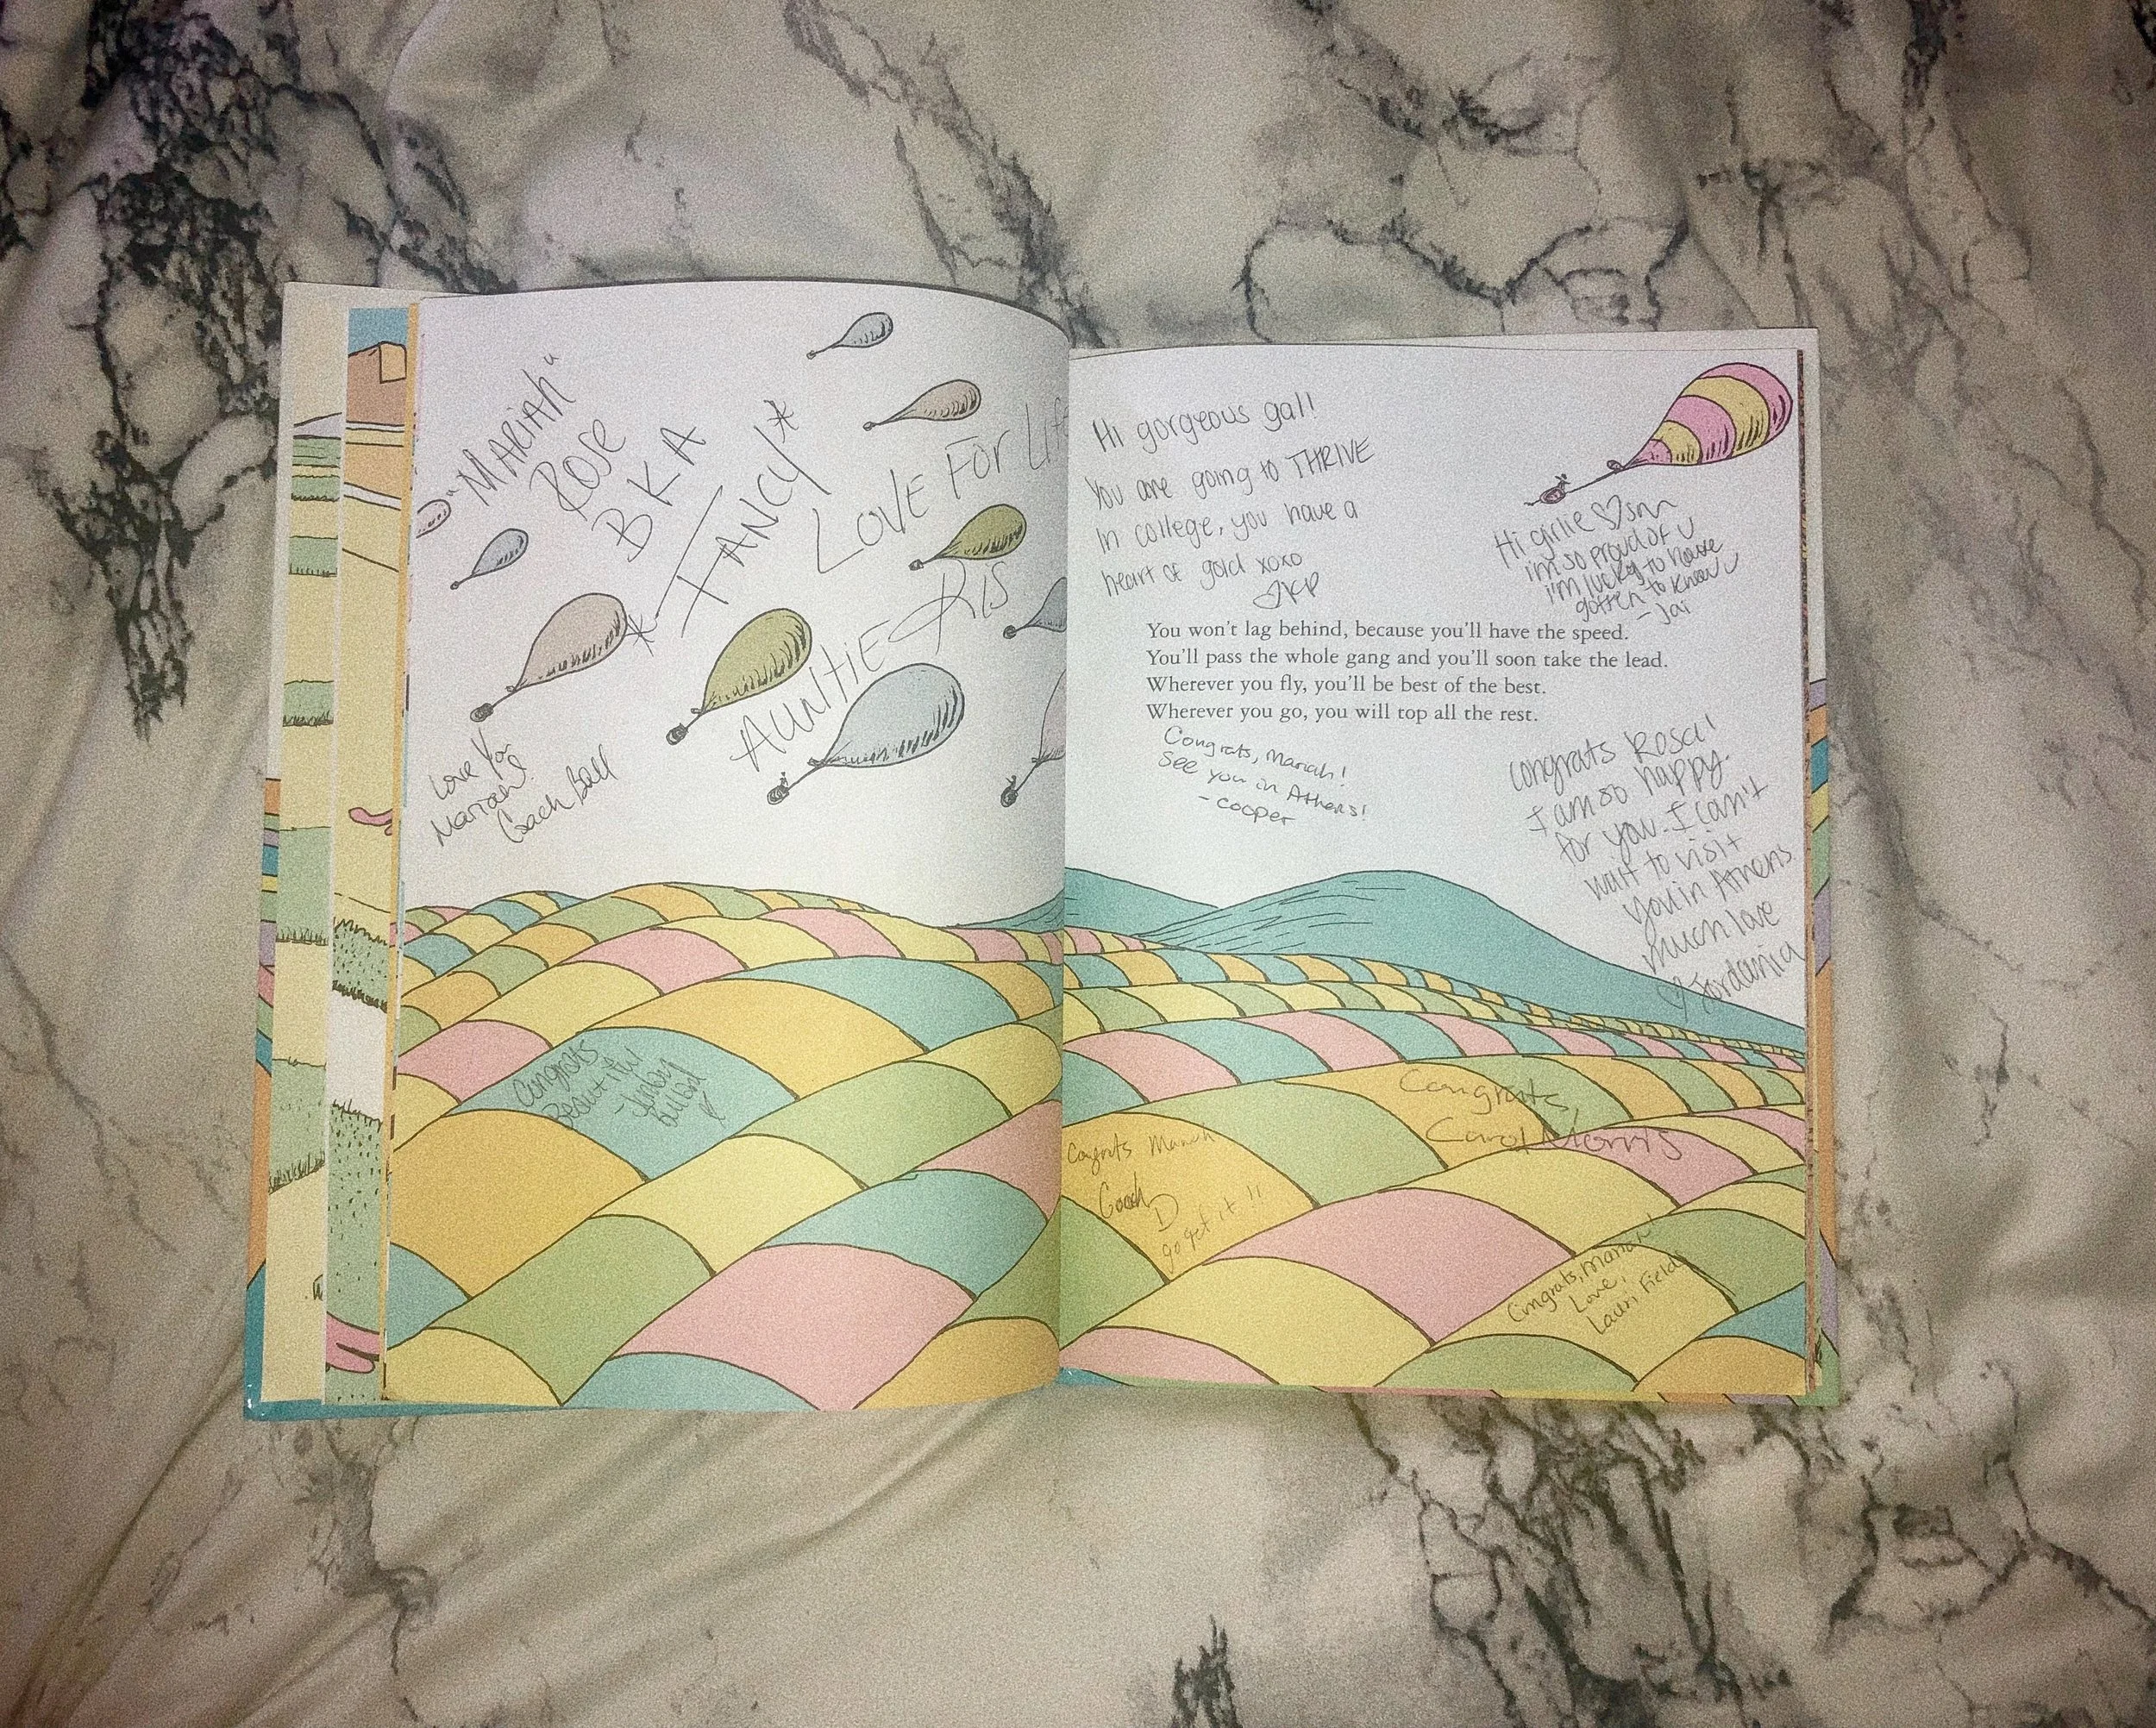 "MARIAH"
Rose
BKA
*FANCY*
LOVE FOR Life
AUNTIE KRIS
Love You
Mariah!
Coach Ball
Congrats
Beautiful
Hi gorgeous gal!
You are going to THRIVE
In college, you have a
heart of gold xoxo
Hi girlie ♡ sm
i'm so proud of u
i'm lucky to have
gotten to know u
- Jai
You won't lag behind, because you'll have the speed.
You'll pass the whole gang and you'll soon take the lead.
Wherever you fly, you'll be best of the best.
Wherever you go, you will top all the rest.
Congrats, Mariah!
See you in Athens!
- Cooper
Congrats Rosa!
I am so happy
for you. I can't
wait to visit
you in Athens
much love
♡ Jordania
Congrats,
Carol Morris
Congrats Mariah
Coach
D
go get it !!
Congrats, Mariah!
Love,
Lauri Fields